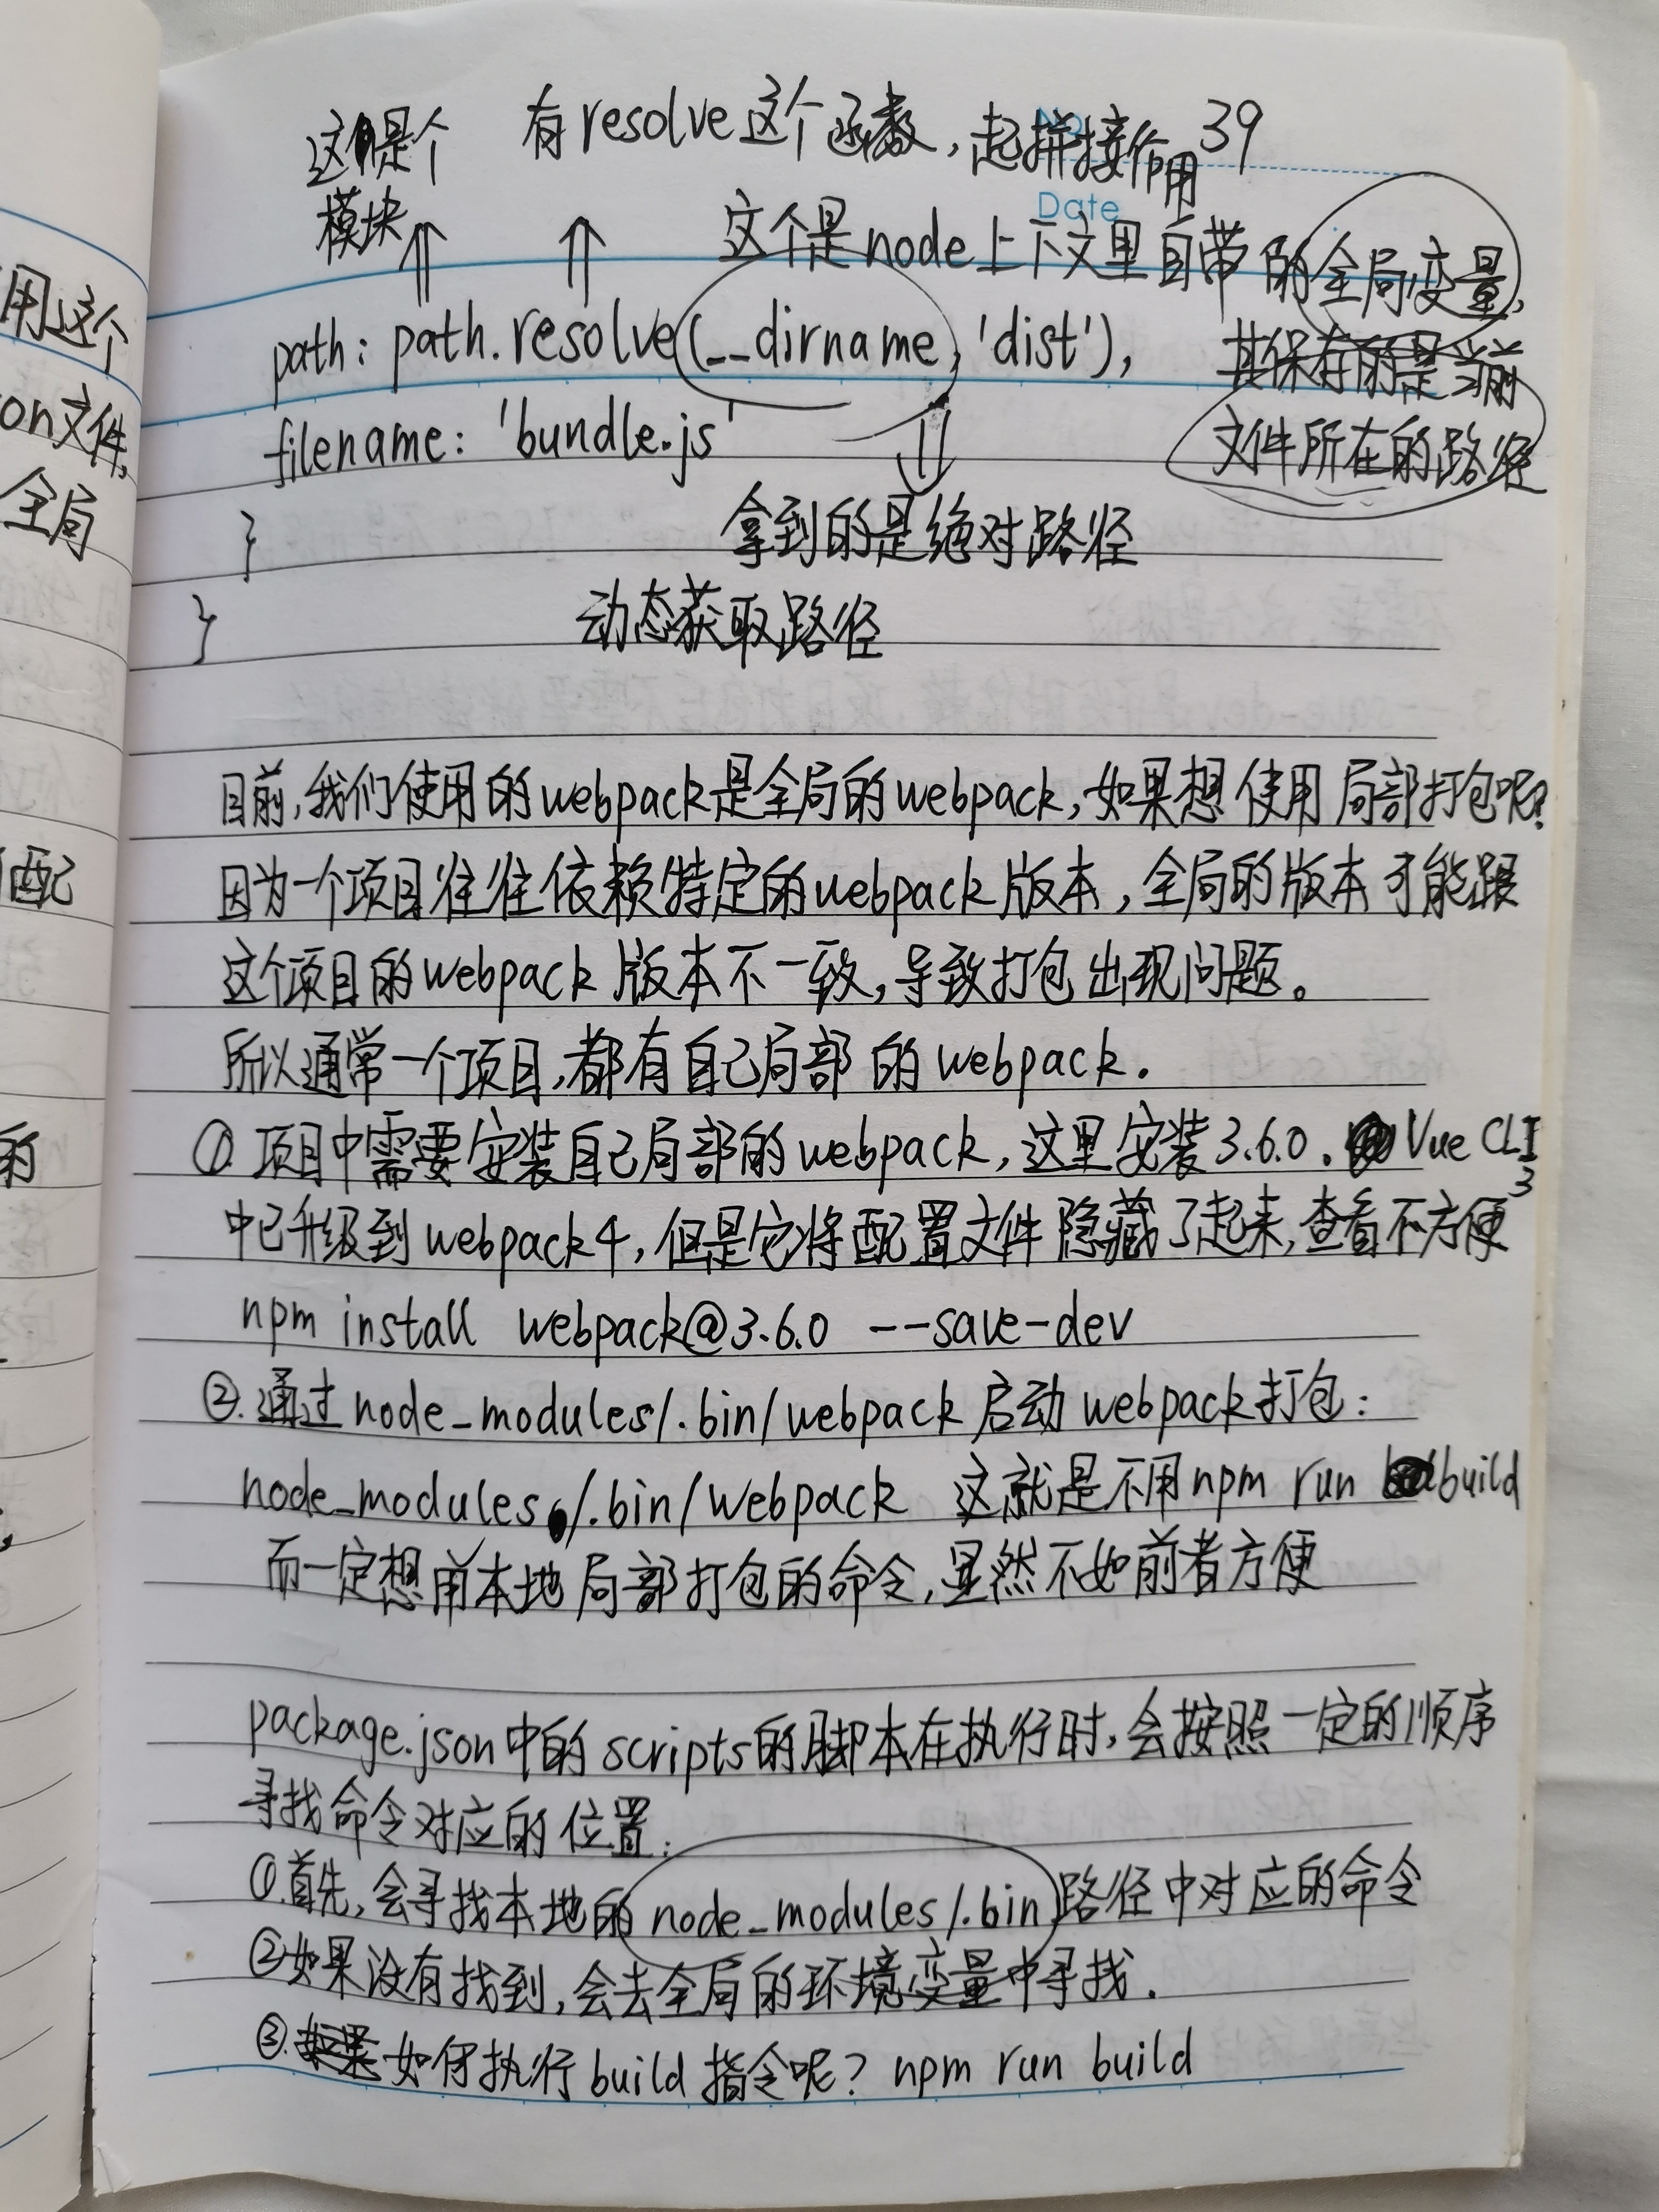 用这个
on文件,
全局
配
的
这是个 有resolve这个函数,起拼接作用 39
模块
Date
这个是node上下文里自带的全局变量,
path: path.resolve(__dirname, 'dist'), 其保存的是当前
filename: 'bundle.js' 文件所在的路径
} 拿到的是绝对路径
} 动态获取路径
目前,我们使用的webpack是全局的webpack,如果想使用局部打包呢?
因为一个项目往往依赖特定的webpack版本,全局的版本可能跟
这个项目的webpack版本不一致,导致打包出现问题。
所以通常一个项目,都有自己局部的webpack.
①.项目中需要安装自己局部的webpack,这里安装3.6.0.Vue CLI3
中已升级到webpack4,但是它将配置文件隐藏了起来,查看不方便
npm install webpack@3.6.0 --save-dev
②.通过node_modules/.bin/webpack启动webpack打包:
node_modules/.bin/webpack 这就是不用npm run build
而一定想用本地局部打包的命令,显然不如前者方便
package.json中的scripts的脚本在执行时,会按照一定的顺序
寻找命令对应的位置:
①.首先,会寻找本地的node_modules/.bin路径中对应的命令
②如果没有找到,会去全局的环境变量中寻找.
③.如何执行build指令呢? npm run build